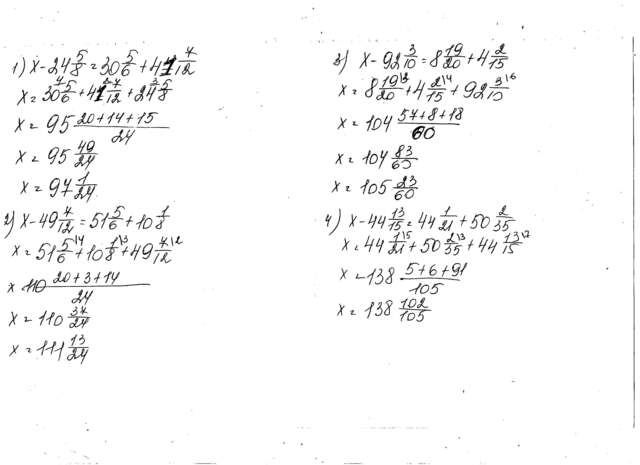 1) x - 24 5/8 = 30 5/6 + 41 7/12
x = 30 5/6 \4 + 41 7/12 \2 + 24 5/8 \3
x = 95 (20+14+15)/24
x = 95 49/24
x = 97 1/24
2) x - 49 7/12 = 51 5/6 + 10 1/8
x = 51 5/6 \4 + 10 1/8 \3 + 49 7/12 \2
x = 110 (20+3+14)/24
x = 110 37/24
x = 111 13/24
3) x - 92 3/10 = 8 19/20 + 4 2/15
x = 8 19/20 \3 + 4 2/15 \4 + 92 3/10 \6
x = 104 (57+8+18)/60
x = 104 83/60
x = 105 23/60
4) x - 44 13/15 = 44 1/21 + 50 2/35
x = 44 1/21 \5 + 50 2/35 \3 + 44 13/15 \7
x = 138 (5+6+91)/105
x = 138 102/105